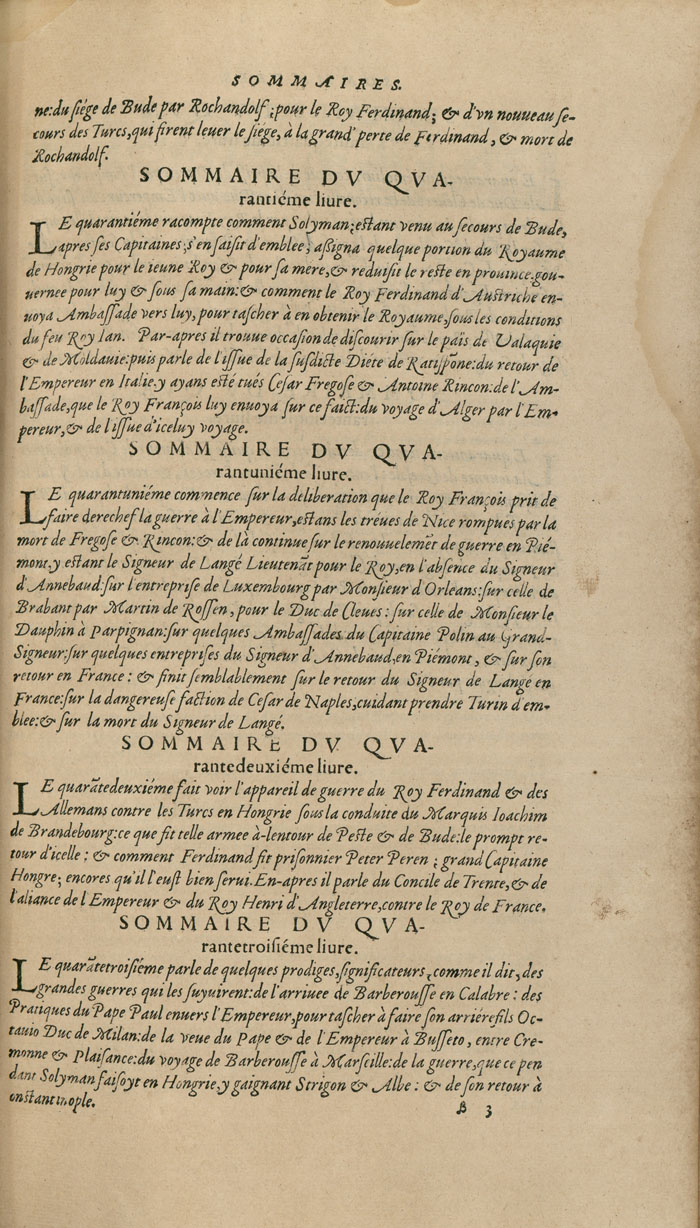 SOMMAIRES.
ne:du siége de Bude par Rochandolf, pour le Roy Ferdinand; & d'vn nouueau se-
cours des Turcs, qui firent leuer le siége, à la grand' perte de Ferdinand, & mort de
Rochandolf.
SOMMAIRE DV QVA-
rantiéme liure.
LE quarantiéme racompte comment Solyman, estant venu au secours de Bude,
apres ses Capitaines, s'en saisit d'emblee, aßigna quelque portion du Royaume
de Hongrie pour le ieune Roy & pour sa mere, & reduisit le reste en prouince gou-
uernee pour luy & sous sa main: & comment le Roy Ferdinand d'Austriche en-
uoya Ambassade vers luy, pour tascher à en obtenir le Royaume, sous les conditions
du feu Roy Ian. Par-apres il trouue occasion de discourir sur le païs de Valaquie
& de Moldauie: puis parle de l'issue de la susdicte Diéte de Ratispõne: du retour de
l'Empereur en Italie, y ayans esté tués Cesar Fregose & Antoine Rincon: de l'Am-
bassade, que le Roy François luy enuoya sur ce faict: du voyage d'Alger par l'Em-
pereur, & de l'issue d'iceluy voyage.
SOMMAIRE DV QVA-
rantuniéme liure.
LE quarantuniéme commence sur la deliberation que le Roy François prit de
faire derechef la guerre à l'Empereur, estans les tréues de Nice rompues par la
mort de Fregose & Rincon: & de là continue sur le renouuelemẽt de guerre en Pié-
mont, y estant le Signeur de Langé Lieutenãt pour le Roy, en l'absence du Signeur
d'Annebaud: sur l'entreprise de Luxembourg par Monsieur d'Orleans: sur celle de
Brabant par Martin de Rossen, pour le Duc de Cleues: sur celle de Monsieur le
Dauphin à Parpignan: sur quelques Ambassades du Capitaine Polin au Grand-
Signeur: sur quelques entreprises du Signeur d'Annebaud, en Piémont, & sur son
retour en France: & finit semblablement sur le retour du Signeur de Langé en
France: sur la dangereuse faction de Cesar de Naples, cuidant prendre Turin d'em-
blee: & sur la mort du Signeur de Langé.
SOMMAIRE DV QVA-
rantedeuxiéme liure.
LE quarãtedeuxiéme fait voir l'appareil de guerre du Roy Ferdinand & des
Allemans contre les Turcs en Hongrie sous la conduite du Marquis Ioachim
de Brandebourg: ce que fit telle armee à-lentour de Peste & de Bude: le prompt re-
tour d'icelle; & comment Ferdinand fit prisonnier Peter Peren; grand Capitaine
Hongre; encores qu'il l'eust bien serui. En-apres il parle du Concile de Trente, & de
l'aliance de l'Empereur & du Roy Henri d'Angleterre, contre le Roy de France.
SOMMAIRE DV QVA-
rantetroisiéme liure.
LE quarãtetroisiéme parle de quelques prodiges, significateurs, comme il dit, des
grandes guerres qui les suyuirent: de l'arriuee de Barberousse en Calabre: des
Pratiques du Pape Paul enuers l'Empereur, pour tascher à faire son arriérefils Oc-
tauio Duc de Milan: de la veue du Pape & de l'Empereur à Busseto, entre Cre-
monne & Plaisance: du voyage de Barberousse à Marseille: de la guerre, que ce pen
dant Solyman faisoyt en Hongrie, y gaignant Strigon & Albe: & de son retour à
onstantinople.
B 3